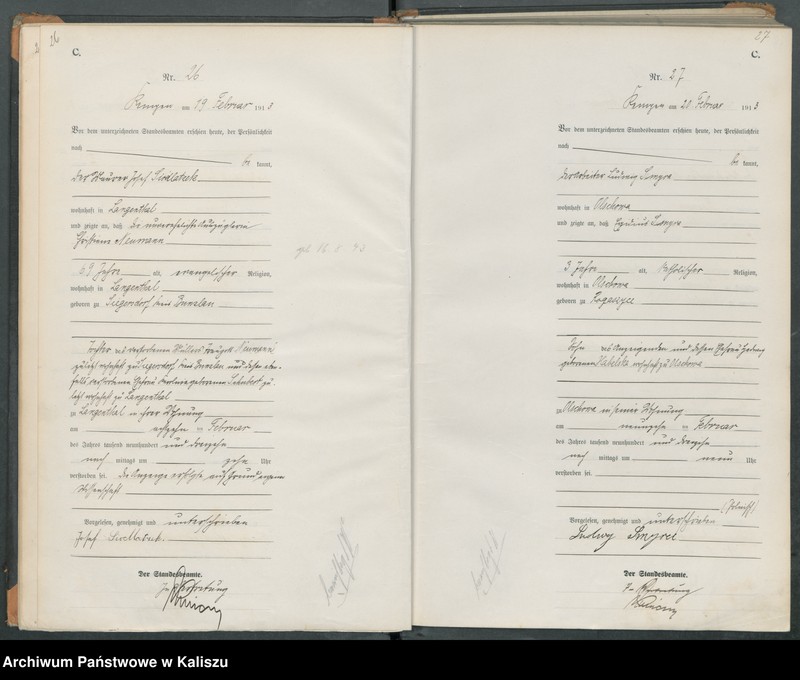 26
C.
Nr. 26
Kempen am 19 Februar 1913
Vor dem unterzeichneten Standesbeamten erschien heute, der Persönlichkeit
nach
be kannt,
der Maurer Josef
wohnhaft in Langenthal
und zeigte an, daß die unverehelichte Auszüglerin
Christiane Neumann
69 Jahre alt, evangelischer Religion,
wohnhaft in Langenthal
geboren zu Siegersdorf, Kreis Bunzlau
Tochter des verstorbenen Müllers Neumann
zuletzt wohnhaft zu Siegersdorf, Kreis Bunzlau und dessen eben-
falls verstorbene Ehefrau geborenen Schubert zu-
letzt wohnhaft zu Langenthal
zu Langenthal in ihrer Wohnung
am achzehn ten Februar
des Jahres tausend neunhundert und dreizehn
nach mittags um zehn Uhr
verstorben sei. Die Anzeige erfolgte auf Grund eigener
Wissenschaft
Vorgelesen, genehmigt und unterschrieben
Josef
Der Standesbeamte.
In Vertretung
27
C.
Nr. 27
Kempen am 20 Februar 1913
Vor dem unterzeichneten Standesbeamten erschien heute, der Persönlichkeit
nach
be kannt,
der Arbeiter Ludwig
wohnhaft in Olschowa
und zeigte an, daß
3 Jahre alt, katholischer Religion,
wohnhaft in Olschowa
geboren zu
Sohn des Anzeigenden und dessen Ehefrau Hedwig
geborenen wohnhaft zu Olschowa
zu Olschowa in seiner Wohnung
am neunzehn ten Februar
des Jahres tausend neunhundert und dreizehn
nach mittags um neun Uhr
verstorben sei.
(polnisch)
Vorgelesen, genehmigt und unterschrieben
Ludwig
Der Standesbeamte.
In Vertretung
Archiwum Państwowe w Kaliszu